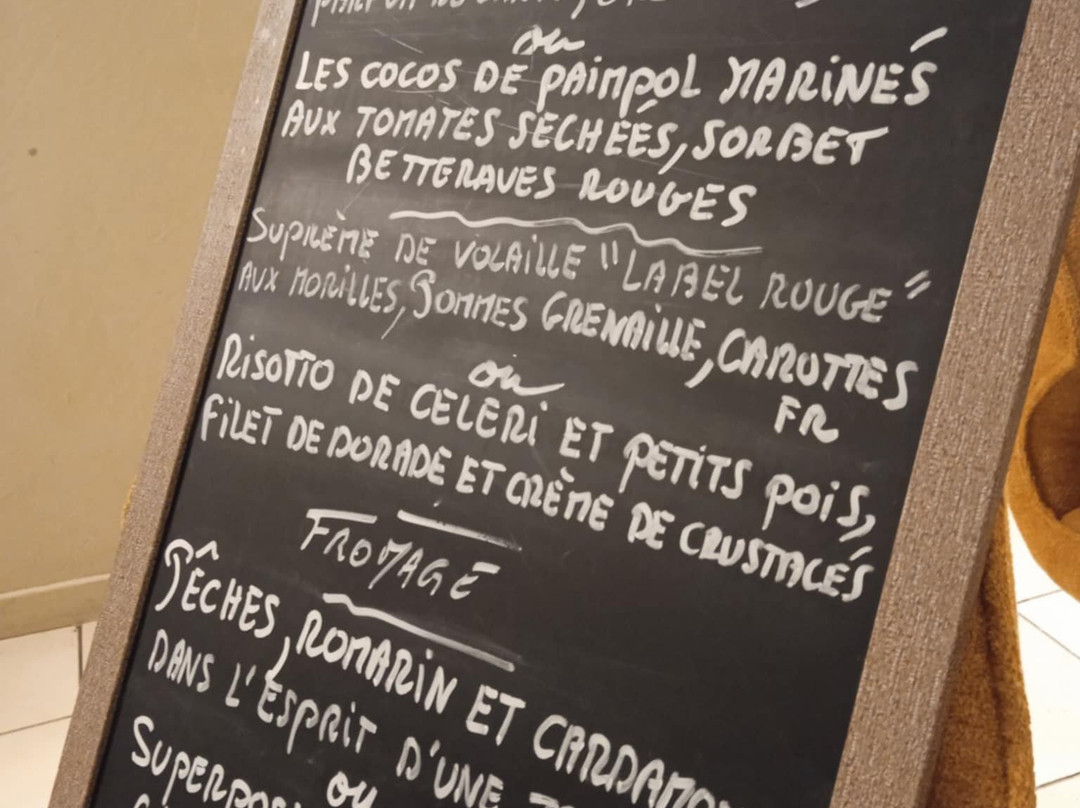 ou
LES COCOS DE PAIMPOL MARINÉS
AUX TOMATES SÉCHÉES, SORBET
BETTERAVES ROUGES
SUPRÊME DE VOLAILLE "LABEL ROUGE"
AUX MORILLES, POMMES GRENAILLE, CAROTTES
FR
ou
RISOTTO DE CELERI ET PETITS POIS,
FILET DE DORADE ET CRÈME DE CRUSTACÉS
FROMAGE
PÊCHES, ROMARIN ET
DANS L'ESPRIT D'UNE
ou